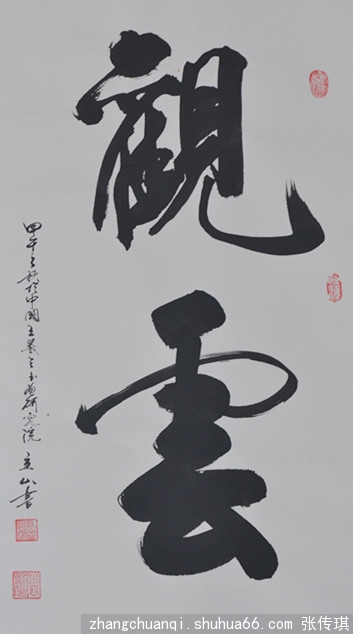 觀雲
甲午之秋於中國王羲之書畫研究院 立山書
zhangchuanqi.shuhua66.com 张传琪